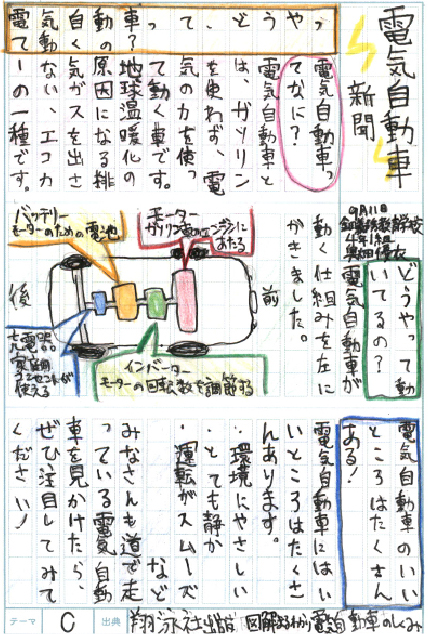 電気自動車
新聞
9月11日
4年1組
電気自動車って、どうやっ
て動くの?
電気自動車っ
てなに?
電気自動車と
は、ガソリン
を使わず、電
気の力を使っ
て動く車です。
地球温暖化の
原因になる排
気ガスを出さ
ない、エコカ
ーの一種です。
どうやって動
いてるの?
電気自動車が
動く仕組みを左に
かきました。
前
モーター
ガソリン車のエンジンに
あたる
バッテリー
モーターのための電池
インバーター
モーターの回転数を調節する
充電器
家庭用
コンセントが
使える
後
電気自動車のいい
ところはたくさん
ある!
電気自動車にはい
いところはたくさ
んあります。
・環境にやさしい
・とても静か
・運転がスムーズ
など
みなさんも道で走
っている電気自動
車を見かけたら、
ぜひ注目してみて
ください!
テーマ
C
出典
翔泳社出版 図解まるわかり電気自動車のしくみ